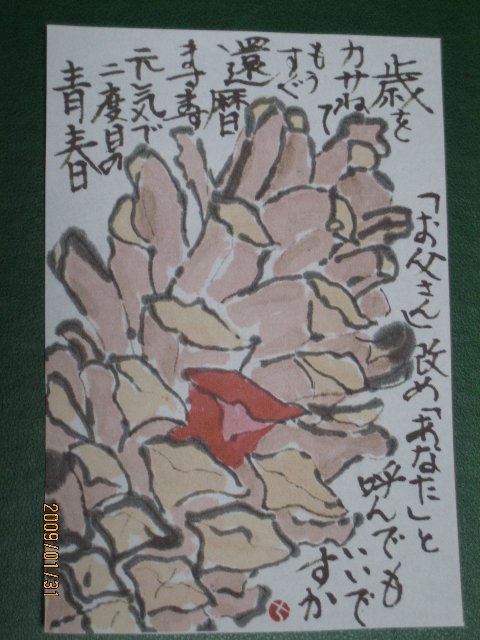 歳を
カサねて
もうすぐ
還暦
ますます
元気で
二度目の
青春
「お父さん」改め「あなた」と
呼んでも
いいで
すか
2009/01/31